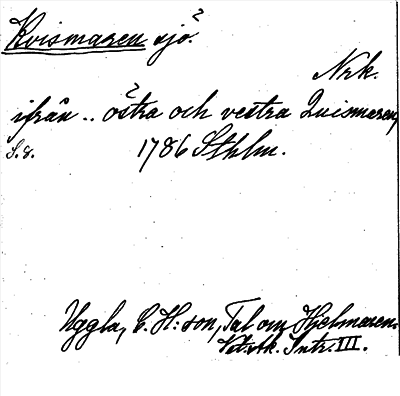 Kvismaren sjö.
Nrk.
ifrån .. östra och vestra Quismaren,
S. 8. 1786 Sthlm.
Uggla, C. H:son, Tal om Hjelmaren.
Vet. ak. Intr. III.